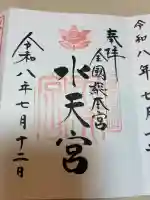 奉拝
全國総本宮
水天宮
令和八年七月十二日
令和八年七月十二